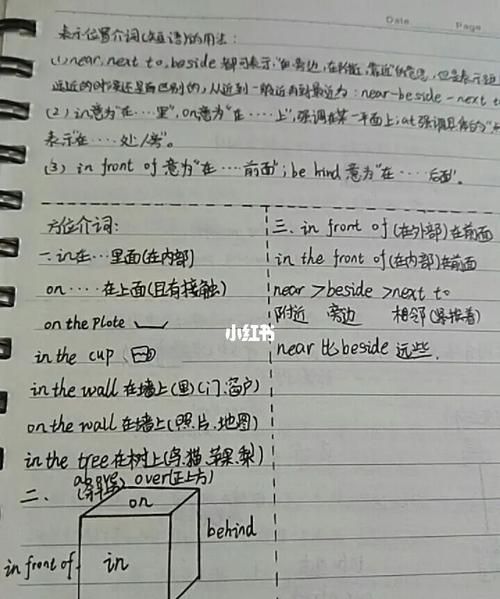 Date
Page
表示位置介词(短语)的用法:
(1) near, next to, beside 都可表示,"在旁边,在附近,靠近"的意思,但是表示
远近的时候还是有区别的,从近到一般近再到最近为: near-beside-next to
(2) in意为"在…里", on意为"在…上",强调在某一平面上; at强调具体的"
表示"在…处/旁"。
(3) in front of 意为"在…前面"; be hind 意为"在…后面"。
方位介词:
一. in在…里面(在内部)
on …. 在上面(且有接触)
on the plote
in the cup
in the wall 在墙上(里)(门、窗户)
on the wall 在墙上(照片、地图)
in the tree 在树上(鸟、猫、苹果、梨)
二、
above (斜上方) over(正上方)
on
behind
in front of
in
三. in front of (在外部)在前面
in the front of (在内部)在前面
near > beside > next to
附近 旁边 相邻(紧挨着)
near 比 beside 远些.
小红书